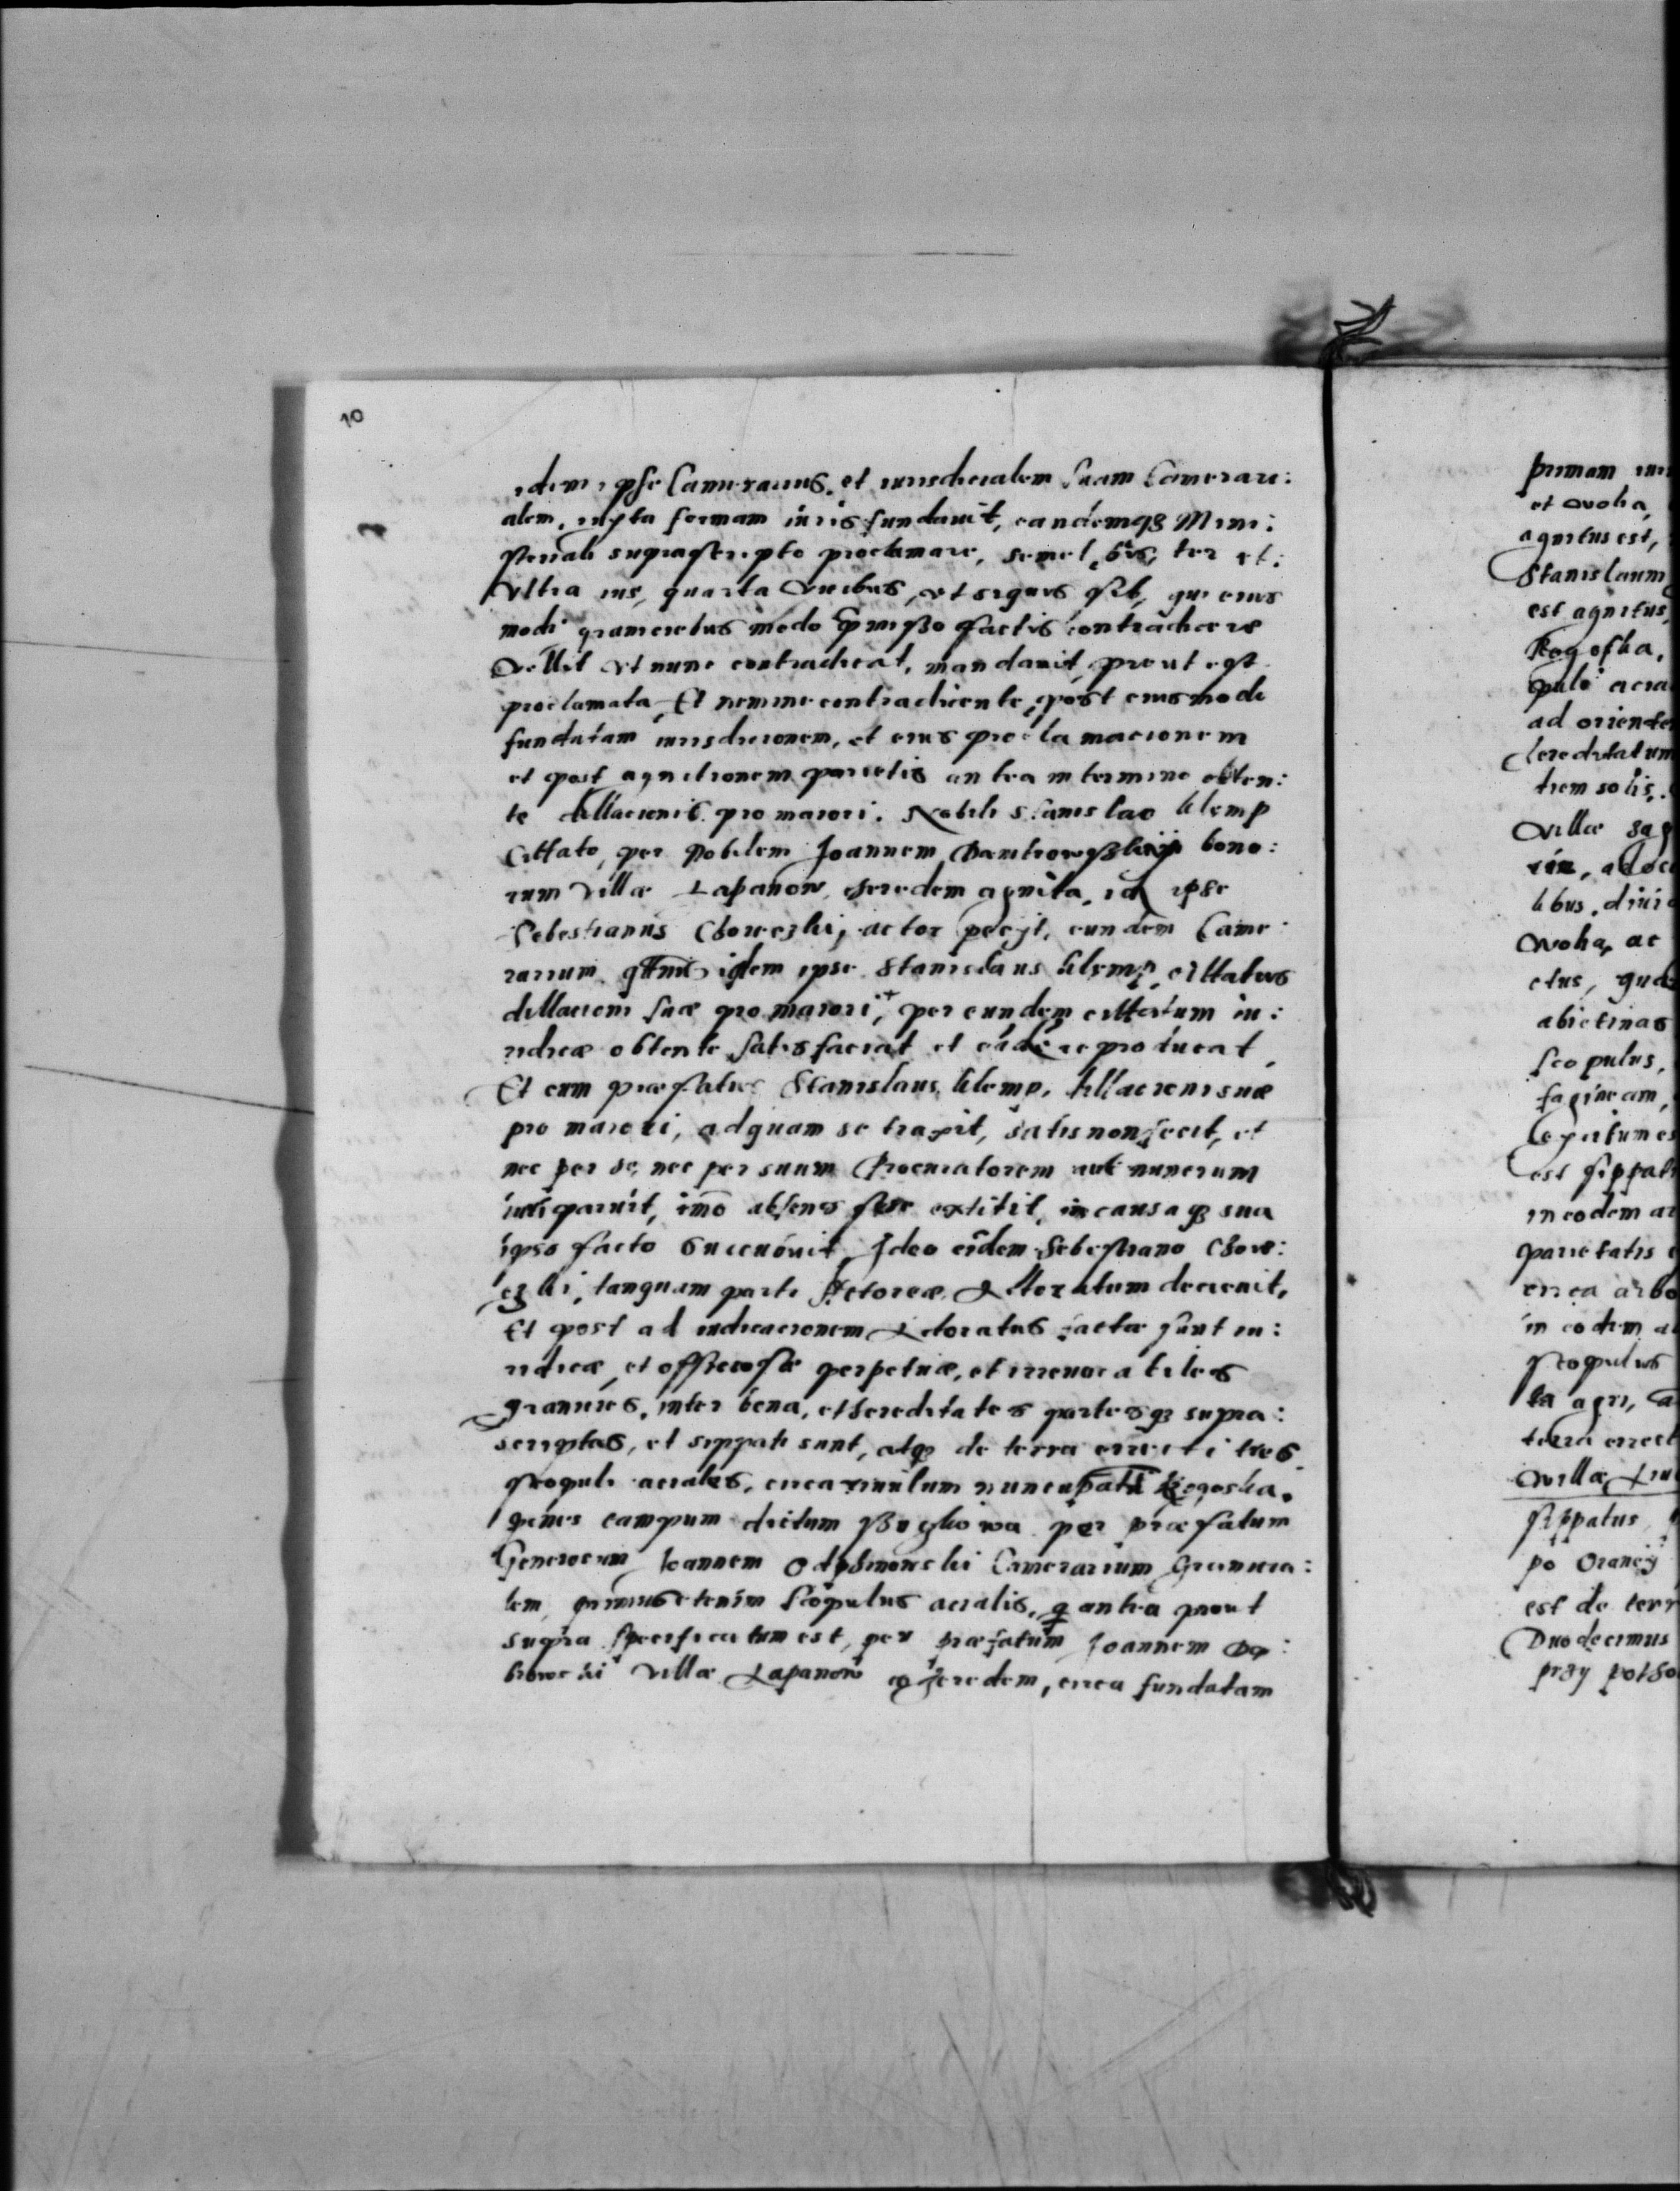 10
idem ipse Camerarius, et iurisdicialem suam Camerari:
alem, iuxta formam iuris fundauit, eandemq3 Mini:
steriali suprascripto proclamare, semel, bis, ter et:
Vltra ius, quarta vicibus, vt siquis sit, qui eius
modi granicietus modo praemisso factis contradicere
Vellit vt nunc contradicat, mandauit, prout est
proclamata, Et nemine contradicente, post eiusmodi
fundatam iurisdicionem, et eius proclamacionem
et post agnitionem parietis antea in termino obten:
te dillacionis pro maiori. Nobili Stanislao Klemp
Cittato, per Nobilem Joannem bono:
rum Villæ Lapanow heredem agnita, id ipse
Sebestianus Chorezki, actor pecijt, eundem Came:
rarium idem ipse Stanislaus Klemp, cittatus
dillacioni suæ pro maiori, per eundem cittatum iu:
ridicæ obtente satisfaciat et reproducat
Et cum præfatus Stanislaus Klemp, dillacioni suæ
pro maiori, ad quam se traxit, satis non fecit, et
nec per se, nec per suum Procuratorem aut nuncium
paruit, imo absens extitit, in causa q3 sua
ipso facto Succubuit, Ideo eidem Sebestiano Chore:
zki, tanquam parti Actoreæ decreuit,
Et post adiudicacionem factæ sunt iu:
ridicæ, et officiosæ perpetuæ, et irreuocatiles
granicies, inter bona, et hereditates partesq3 supra:
scriptas, et sippati sunt, atq3 de terra errecti tres
scopuli aciales, circa riuulum nuncupatum Rogoska.
penes campum dictum per præfatum
Generosum Joannem Camerarium Granicia:
lem, primus etenim scopulus acialis, antea prout
supra specificatum est, per præfatum Joannem
browski Villæ Lapanow heredem, circa fundatam
primam
et wolia,
agnitus est,
Stanislaum
est agnitus,
Rogoska,
puli acia
ad oriente
hereditatum
tiem solis,
Villæ
libus, diui
Wolia, ac
ctus,
abietinas
scopulus,
fagineam,
est sippat
in eodem
parietatis
circa arbo
in eodem
scopulus
ta agri,
terra errect
Villæ
sippatus
po Oranej
est de terr
Duodecimus
przy